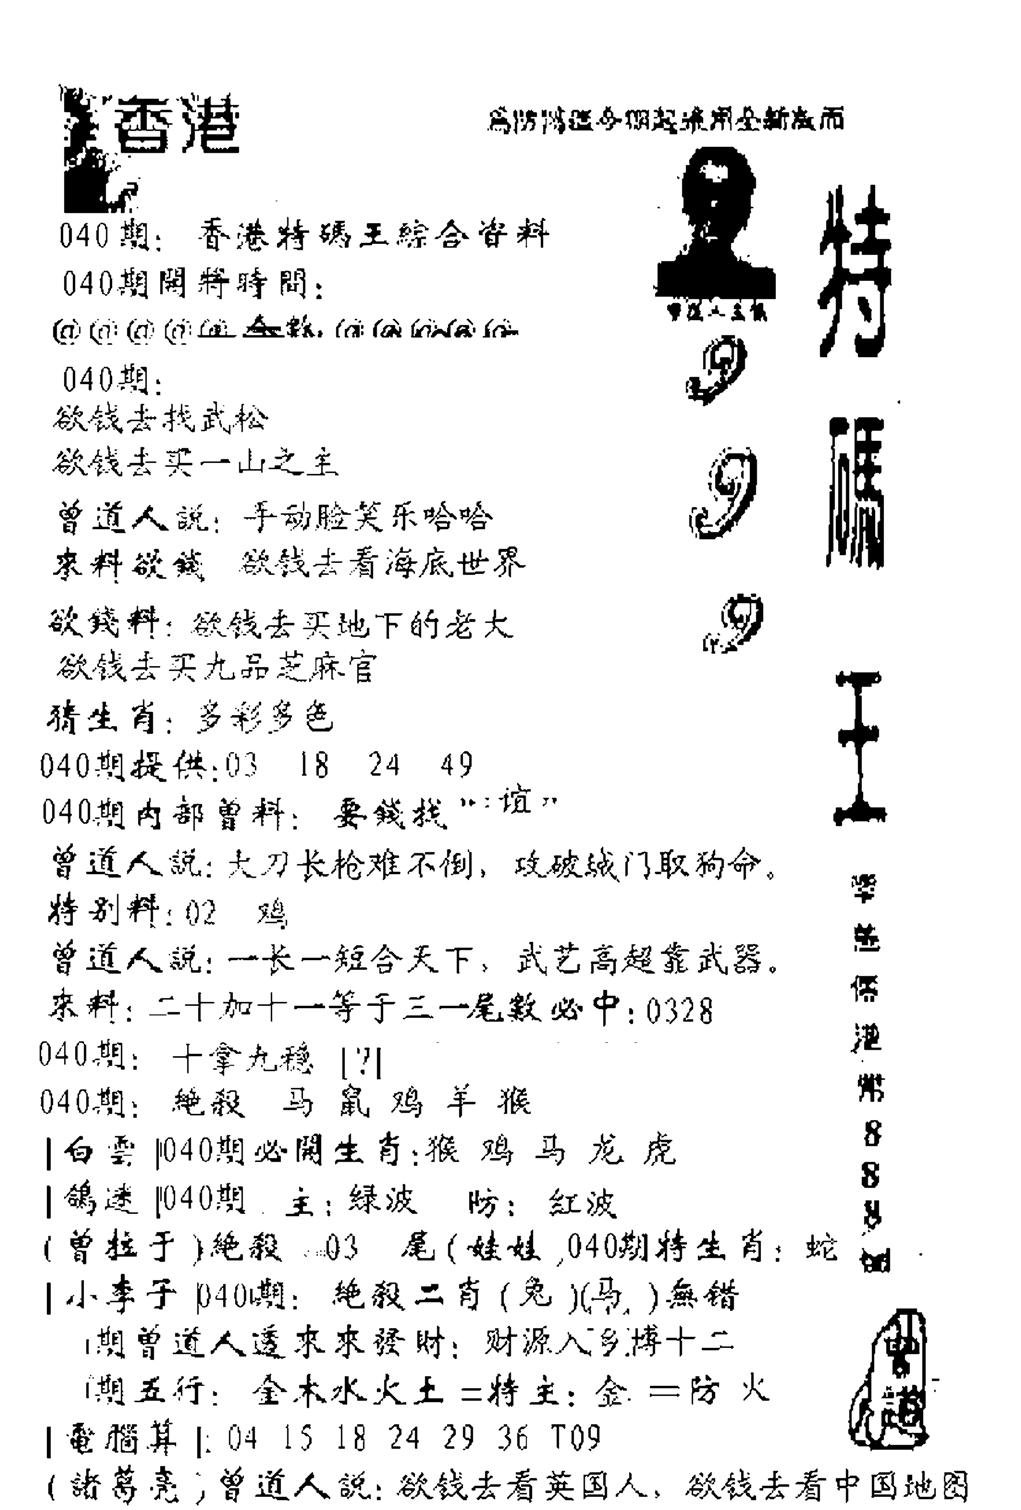 香港
為防偽造今期起采用全新版面
040期: 香港特碼王綜合資料
040期開將時間:
@@@@@ 全数 @@@@@
040期:
欲钱去找武松
欲钱去买一山之主
曾道人説: 手动脸笑乐哈哈
來料欲錢 欲钱去看海底世界
欲錢料: 欲钱去买地下的老大
欲钱去买九品芝麻官
猜生肖: 多彩多色
040期提供:03 18 24 49
040期内部曾料: 要錢找“:谊”
曾道人説: 大刀长枪难不倒, 攻破城门取狗命。
特别料: 02 鸡
曾道人説: 一长一短合天下, 武艺高超靠武器。
來料: 二十加十一等于三一尾數必中: 0328
040期: 十拿九稳 |?|
040期: 絶殺 马 鼠 鸡 羊 猴
|白雲|040期必開生肖:猴 鸡 马 龙 虎
|鴿迷|040期 主: 緑波 防: 紅波
(曾拉于)絶殺 03 尾(娃娃)040期特生肖: 蛇
|小李子|040期: 絶殺二肖(兔)(马)無错
期曾道人透來來發財: 财源入乡博十二
期五行: 金木水火土=特主: 金 =防 火
|電腦算|: 04 15 18 24 29 36 T09
(諸葛亮)曾道人説: 欲钱去看英国人, 欲钱去看中国地图
曾道人
999
特碼王
港
8888